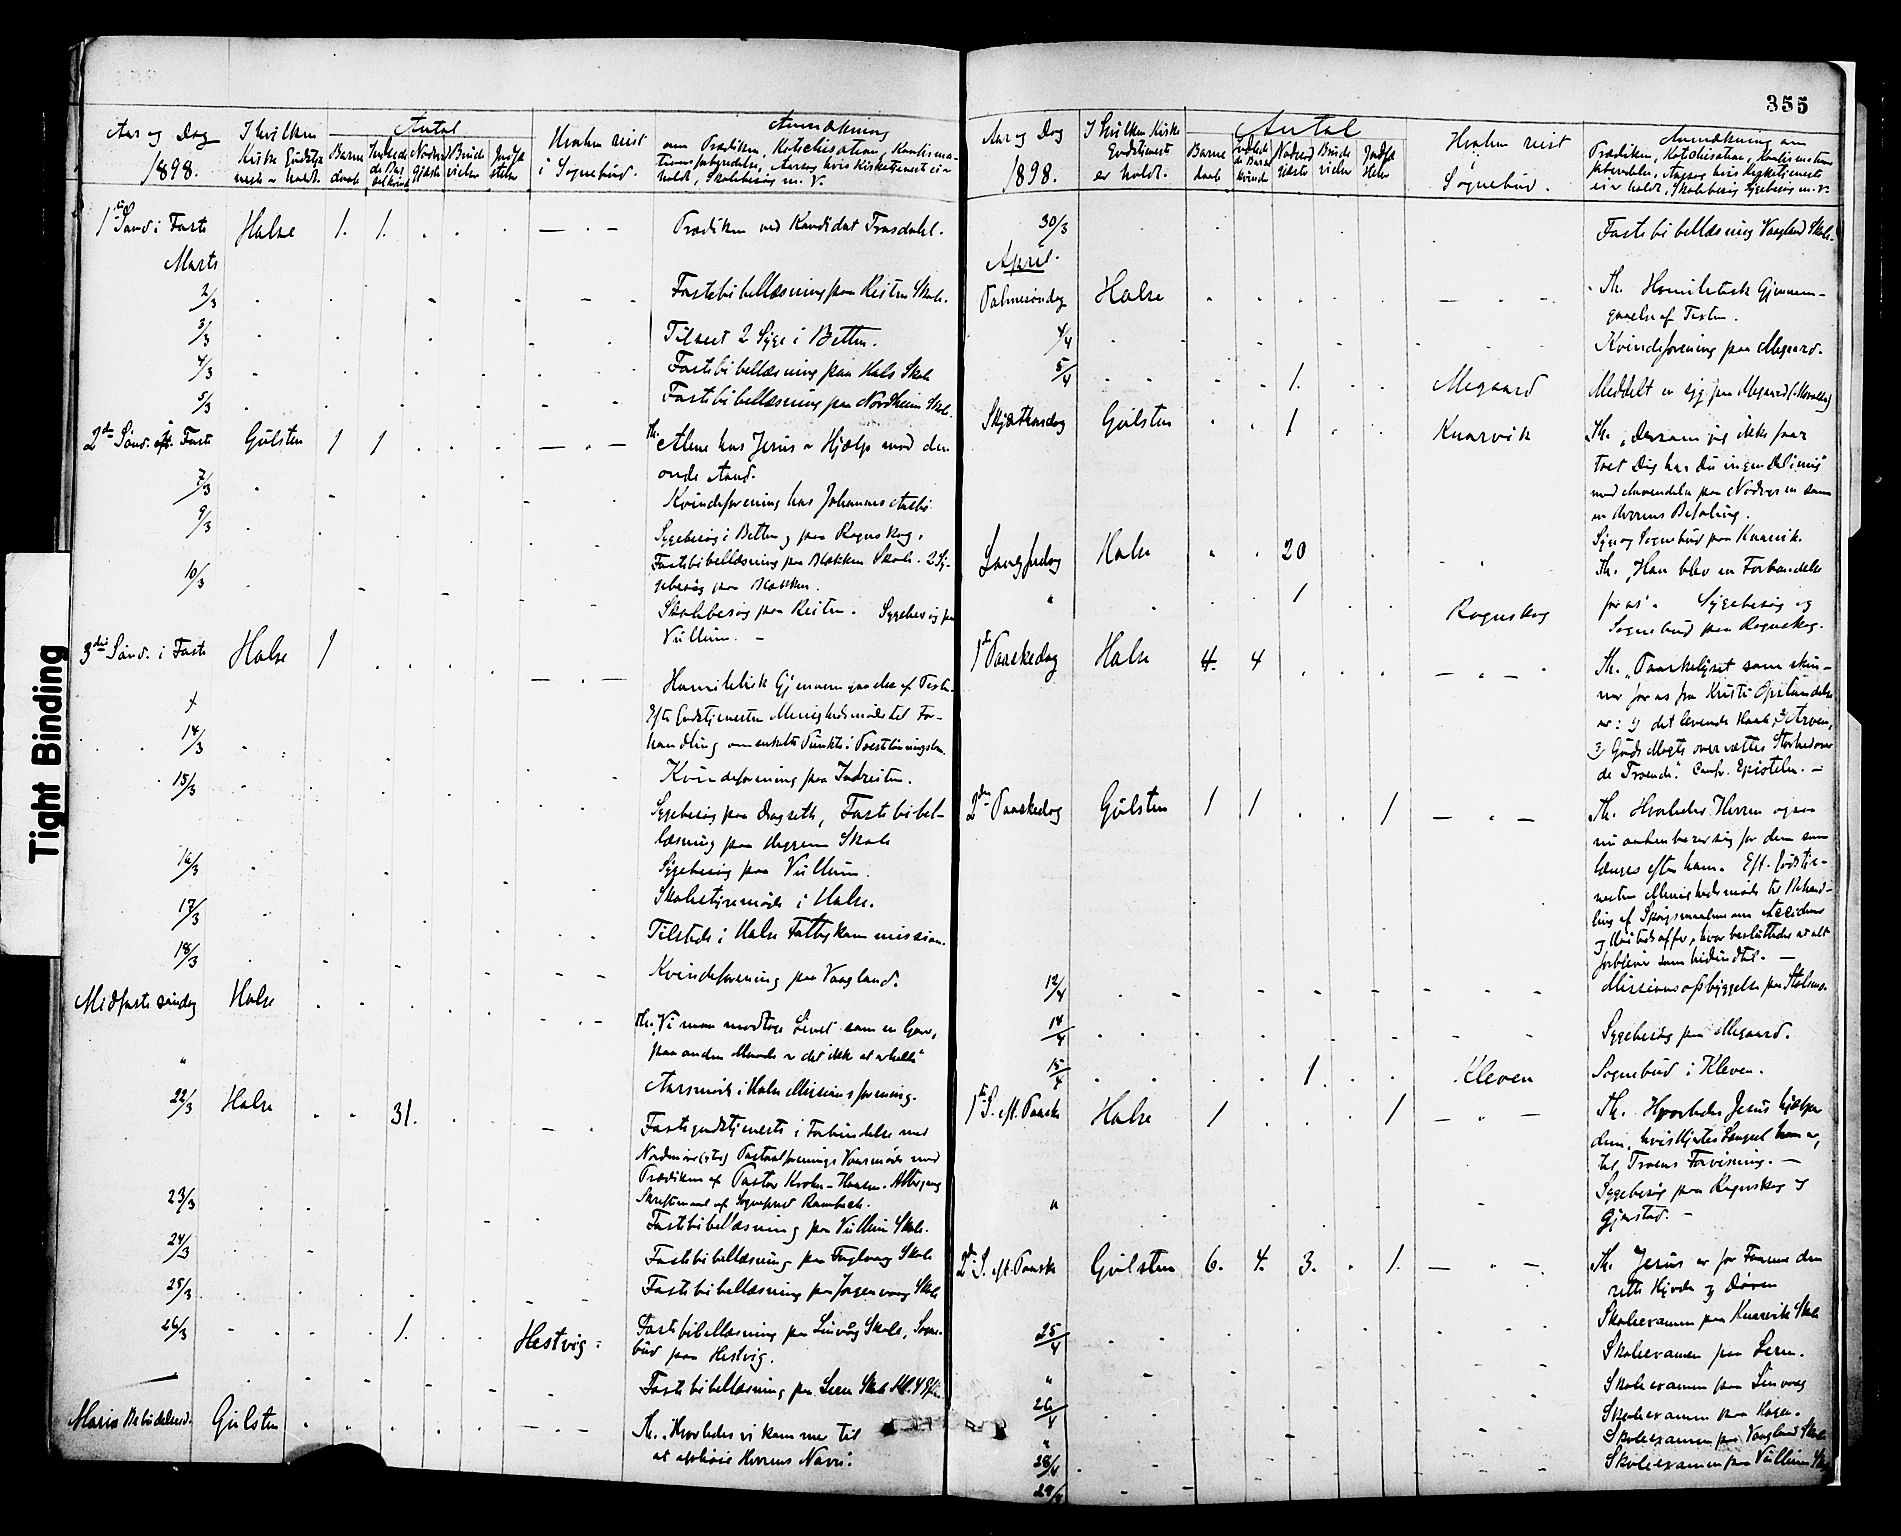 355
Aar og Dag
1898.
I hvilken
Kirke Gudstje
neste er holdt.
Antal
Barne
daab
Brude
vielser
Hvorhen reist
i Sognebud.
Anmærkning
om Prædiken, Katechisation, Konfirma-
holdt, Skolebesøg m. V.
1ste Sønd. i Faste Halse 1. 1. Prædiken ved Kandidat
Marts
2/3 Fastebibellæsning paa Skole.
3/3 Tilseet 2 Syge i Betten.
4/3 Fastebibellæsning paa Hals Skole
5/3 Fastebibellæsning paa Nordheim Skole.
2den Sønd. Faste Gulsten 1 1 Th. Alene hos Jesus er Hjælp mod den
onde Aand.
7/3 Kvindeforening hos Johannes
9/3 Sygebesøg i Betten og paa Rognskog.
Fastebibellæsning paa Bækken Skole. 2 Sy-
10/3 gebesøg paa Bækken.
Skolebesøg paa Sygebesøg paa
Villum. —
3die Sønd. i Faste Halse 1
Homiletisk Gjennemgaaelse af Texten.
Efter Gudstjenesten Menighedsmøde til For-
14/3 handling om enkelte Punkter i
15/3 Kvindeforening paa
Sygebesøg paa Fastebibel-
læsning paa Skole
16/3 Sygebesøg paa Villum.
Skolestyremøde i Halse.
17/3 Tilstede i Halse Fattigkommission.
18/3 Kvindeforening paa Vaagland.
Midfaste søndag Halse
Th. Vi maa modtage Livet som en Gave,
paa anden Maade er det ikke at erholde"
" Aarsmøde i Halse Missionsforening.
22/3 Halse 31. Fastegudstjeneste i Forbindelse med
Pastoralforenings Vaarmøde med
Prædiken af Pastor Krohn-Hansen. Altergang
23/3 Skriftemaal af Sogneprest
Fastebibellæsning paa Villum Skole.
24/3 Fastebibellæsning paa Fuglvaag Skole
25/3 Fastebibellæsning paa Jørgenvaag Skole
26/3 1. Hestvig Fastebibellæsning paa Linvåg Skole, Sogne-
bud paa Hestvig.
Fastebibellæsning paa Leren Skole Kl. 4
Mariæ Bebudelsesd. Gulsten
Th. "Hvorledes vi kommer til
at ophøie Herrens Navn."
Aar og Dag
1898.
I hvilken Kirke
Gudstjeneste
er holdt.
Antal
Barne
daab
Brude
vielser
Hvorhen reist
Sognebud.
Anmærkning om
Prædiken, Katechisation, Konfirmations
forberedelse, Aarsag hvis Kirketjeneste
ei er holdt, Skolebesøg Sygebesøg m. v.
30/3 Fastebibellæsning Vaagland Skole.
April.
Palmesøndag Halse Th. Homiletisk Gjennem-
gaaelse af Texten.
4/4 Kvindeforening paa Megaard.
5/4 1. Megaard Meddelt en syg paa Megaard
Skjærthorsdag Gulsten 1 Knarvik Th. "Dersom jeg ikke faar
toet Dig har Du ingen Del i mig"
med Anvendelse paa Nadveren som
en Herrens Befaling.
Syge og Sognebud paa Knarvik.
Langfredag Halse 20 Th. "Han blev en Forbandelse
" 1 Rognskog for os". Sygebesøg og
Sognebud paa Rognskog.
1ste Paaskedag Halse 4. 4 Th. "Paaskelyset som skin-
ner for os fra Kristi Opstandelse
er: 1) det levende Haab, 2) Arven,
3) Guds Magts overvættes Storhed over
de Troende". Epistelen. —
2den Paaskedag Gulsten 1 1 1 Th. Hvorledes Herren ogsaa
nu aabenbarer sig for dem som
længes efter ham. Eft. Gudstje-
nesten Menighedsmøde til Behand-
ling af Spørgsmaalene om Accidens
og Høitidsoffer, hvor besluttedes at alt
forbliver som hidindtil. —
12/4 Missionsopbyggelse paa
14/4 Sygebesøg paa Megaard.
15/4 1. Kleven Sognebud i Kleven.
1ste S. eft. Paaske Halse 1 1 Th. Hvorledes Jesus hjælper
dem, hvis Hjertes Længsel han er,
til Troens Forvisning. —
" Sygebesøg paa Rognskog og
Gjenstad. —
2den S. eft. Paaske Gulsten 6. 4. 3. 1. Th. Jesus er for Faarene den
rette Hyrde og Døren
Skoleexamen paa Knarvik Skole
25/4 Skoleexamen paa Leren.
" Skoleexamen paa Linvaag
26/4 Skoleexamen paa Hagen.
" Skoleexamen paa Vaagland Skole
28/4 Skoleexamen paa Villum Skole
29/4
Tight Binding